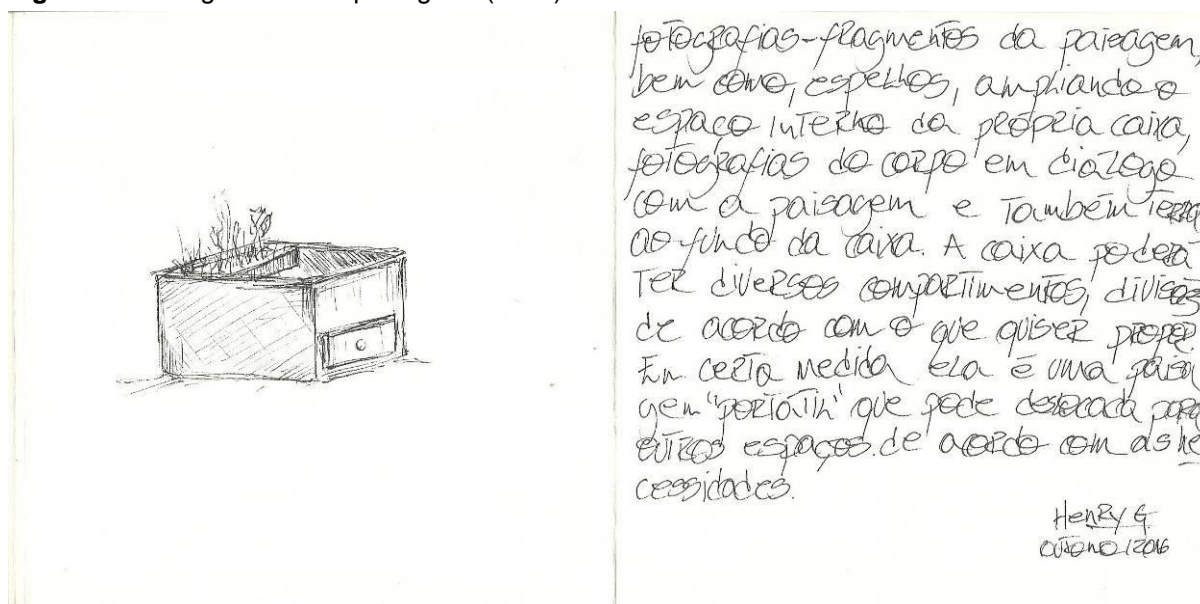 fotografias-fragmentos da paisagem,
bem como, espelhos, ampliando o
espaço interno da própria caixa,
fotografias do corpo em diálogo
com a paisagem e também terra
ao fundo da caixa. A caixa poderá
ter diversos compartimentos, divisões
de acordo com o que quiser propor.
Em certa medida ela é uma paisa
gem "portátil" que pode deslocada para
outros espaços de acordo com as ne
cessidades.
Henry G
outono/2016